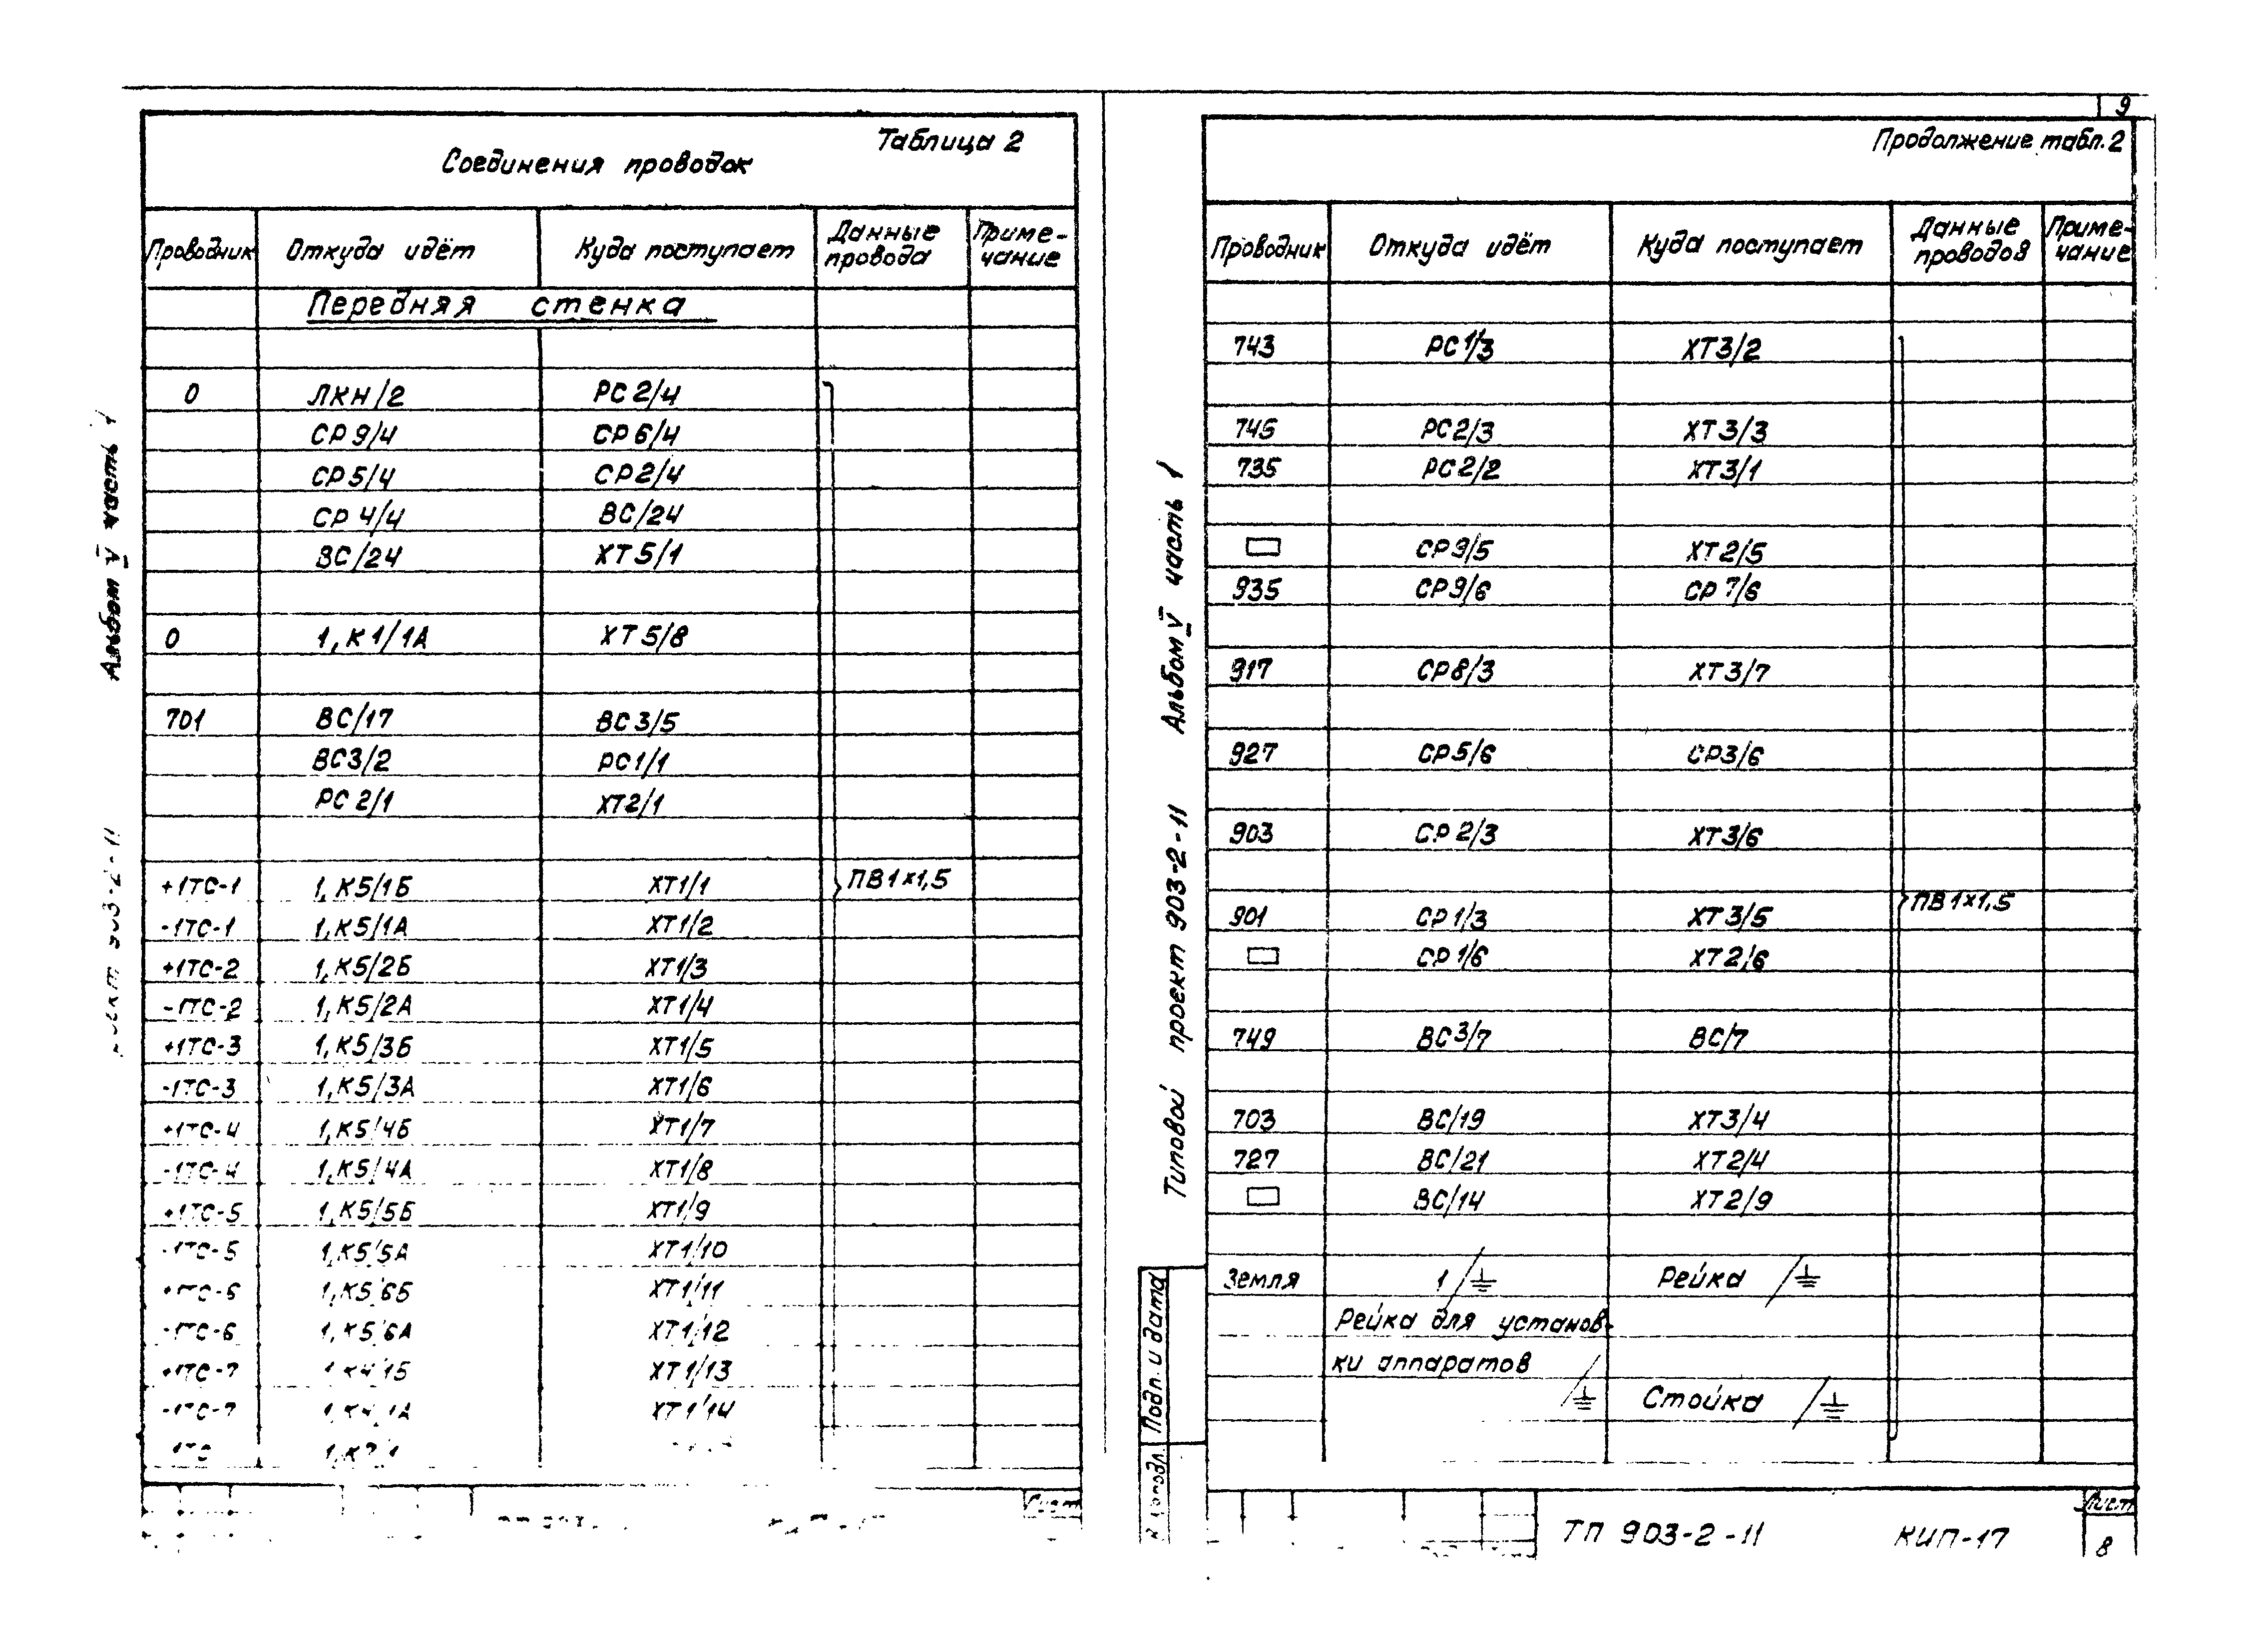 Альбом V часть 1
903-2-11
Таблица 2
Соединения проводок
Проводник Откуда идёт Куда поступает Данные провода Приме-чание
Передняя стенка
0 ЛКН/2 РС2/4
СР9/4 СР6/4
СР5/4 СР2/4
СР4/4 ВС/24
ВС/24 ХТ5/1
0 1,К1/1А ХТ5/8
701 ВС/17 ВС3/5
ВС3/2 РС1/1
РС2/1 ХТ2/1
+1ТС-1 1,К5/1Б ХТ1/1 ПВ1х1,5
-1ТС-1 1,К5/1А ХТ1/2
+1ТС-2 1,К5/2Б ХТ1/3
-1ТС-2 1,К5/2А ХТ1/4
+1ТС-3 1,К5/3Б ХТ1/5
-1ТС-3 1,К5/3А ХТ1/6
+1ТС-4 1,К5/4Б ХТ1/7
-1ТС-4 1,К5/4А ХТ1/8
+1ТС-5 1,К5/5Б ХТ1/9
-1ТС-5 1,К5/5А ХТ1/10
+1ТС-6 1,К5/6Б ХТ1/11
-1ТС-6 1,К5/6А ХТ1/12
+1ТС-7 1,К4/1Б ХТ1/13
-1ТС-7 1,К4/1А ХТ1/14
Лист
9
Продолжение табл.2
Проводник Откуда идёт Куда поступает Данные проводов Приме-чание
743 РС1/3 ХТ3/2
745 РС2/3 ХТ3/3
735 РС2/2 ХТ3/1
СР9/5 ХТ2/5
935 СР9/6 СР7/6
917 СР8/3 ХТ3/7
927 СР5/6 СР3/6
903 СР2/3 ХТ3/6
901 СР1/3 ХТ3/5 ПВ1х1,5
СР1/6 ХТ2/6
749 ВС3/7 ВС/7
703 ВС/19 ХТ3/4
727 ВС/21 ХТ2/4
ВС/14 ХТ2/9
Земля 1/⏚ Рейка /⏚
Рейка для установ-
ки аппаратов
/⏚ Стойка /⏚
Типовой проект 903-2-11 Альбом V часть 1
Подп. и дата
ТП 903-2-11 КИП-17
Лист
8